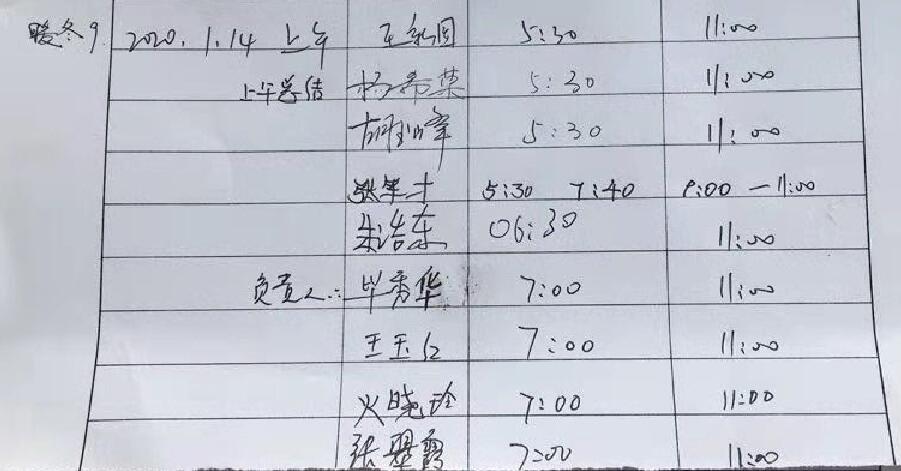 暖冬9 2020.1.14 上午 王新国 5:30 11:00
上午总结 杨希荣 5:30 11:00
5:30 11:00
张年才 5:30 7:40 8:00 — 11:00
朱浩东 06:30 11:00
负责人: 毕秀华 7:00 11:00
王玉仁 7:00 11:00
火晓玲 7:00 11:00
张 7:00 11:00